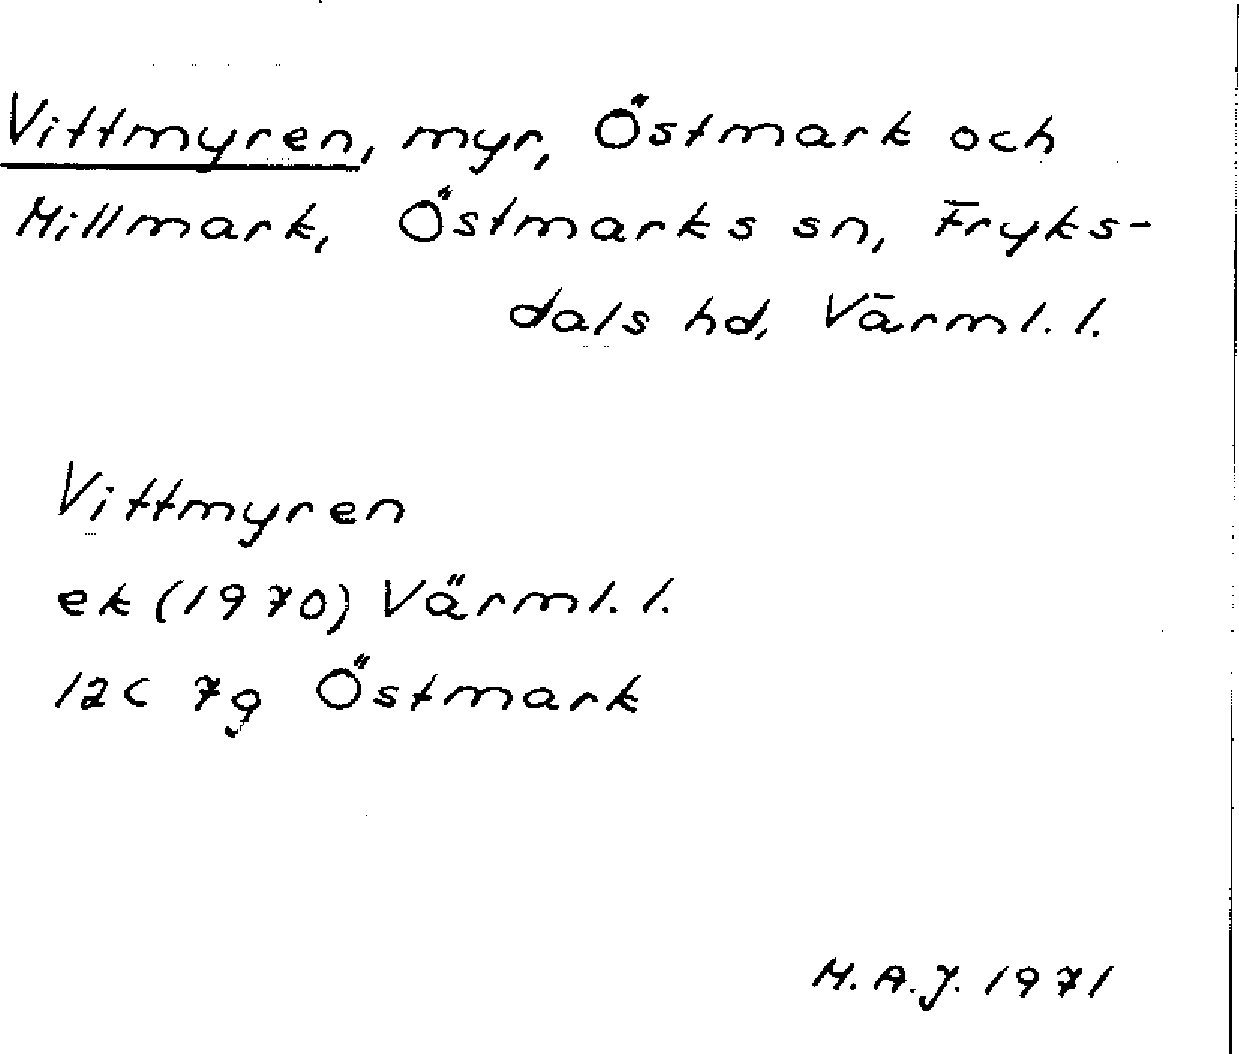 Vittmyren, myr, Östmark och
Millmark, Östmarks sn, Fryks-
dals hd, Värml. l.
Vittmyren
ek (1970) Värml. l.
12C 7g Östmark
M.A.J. 1971